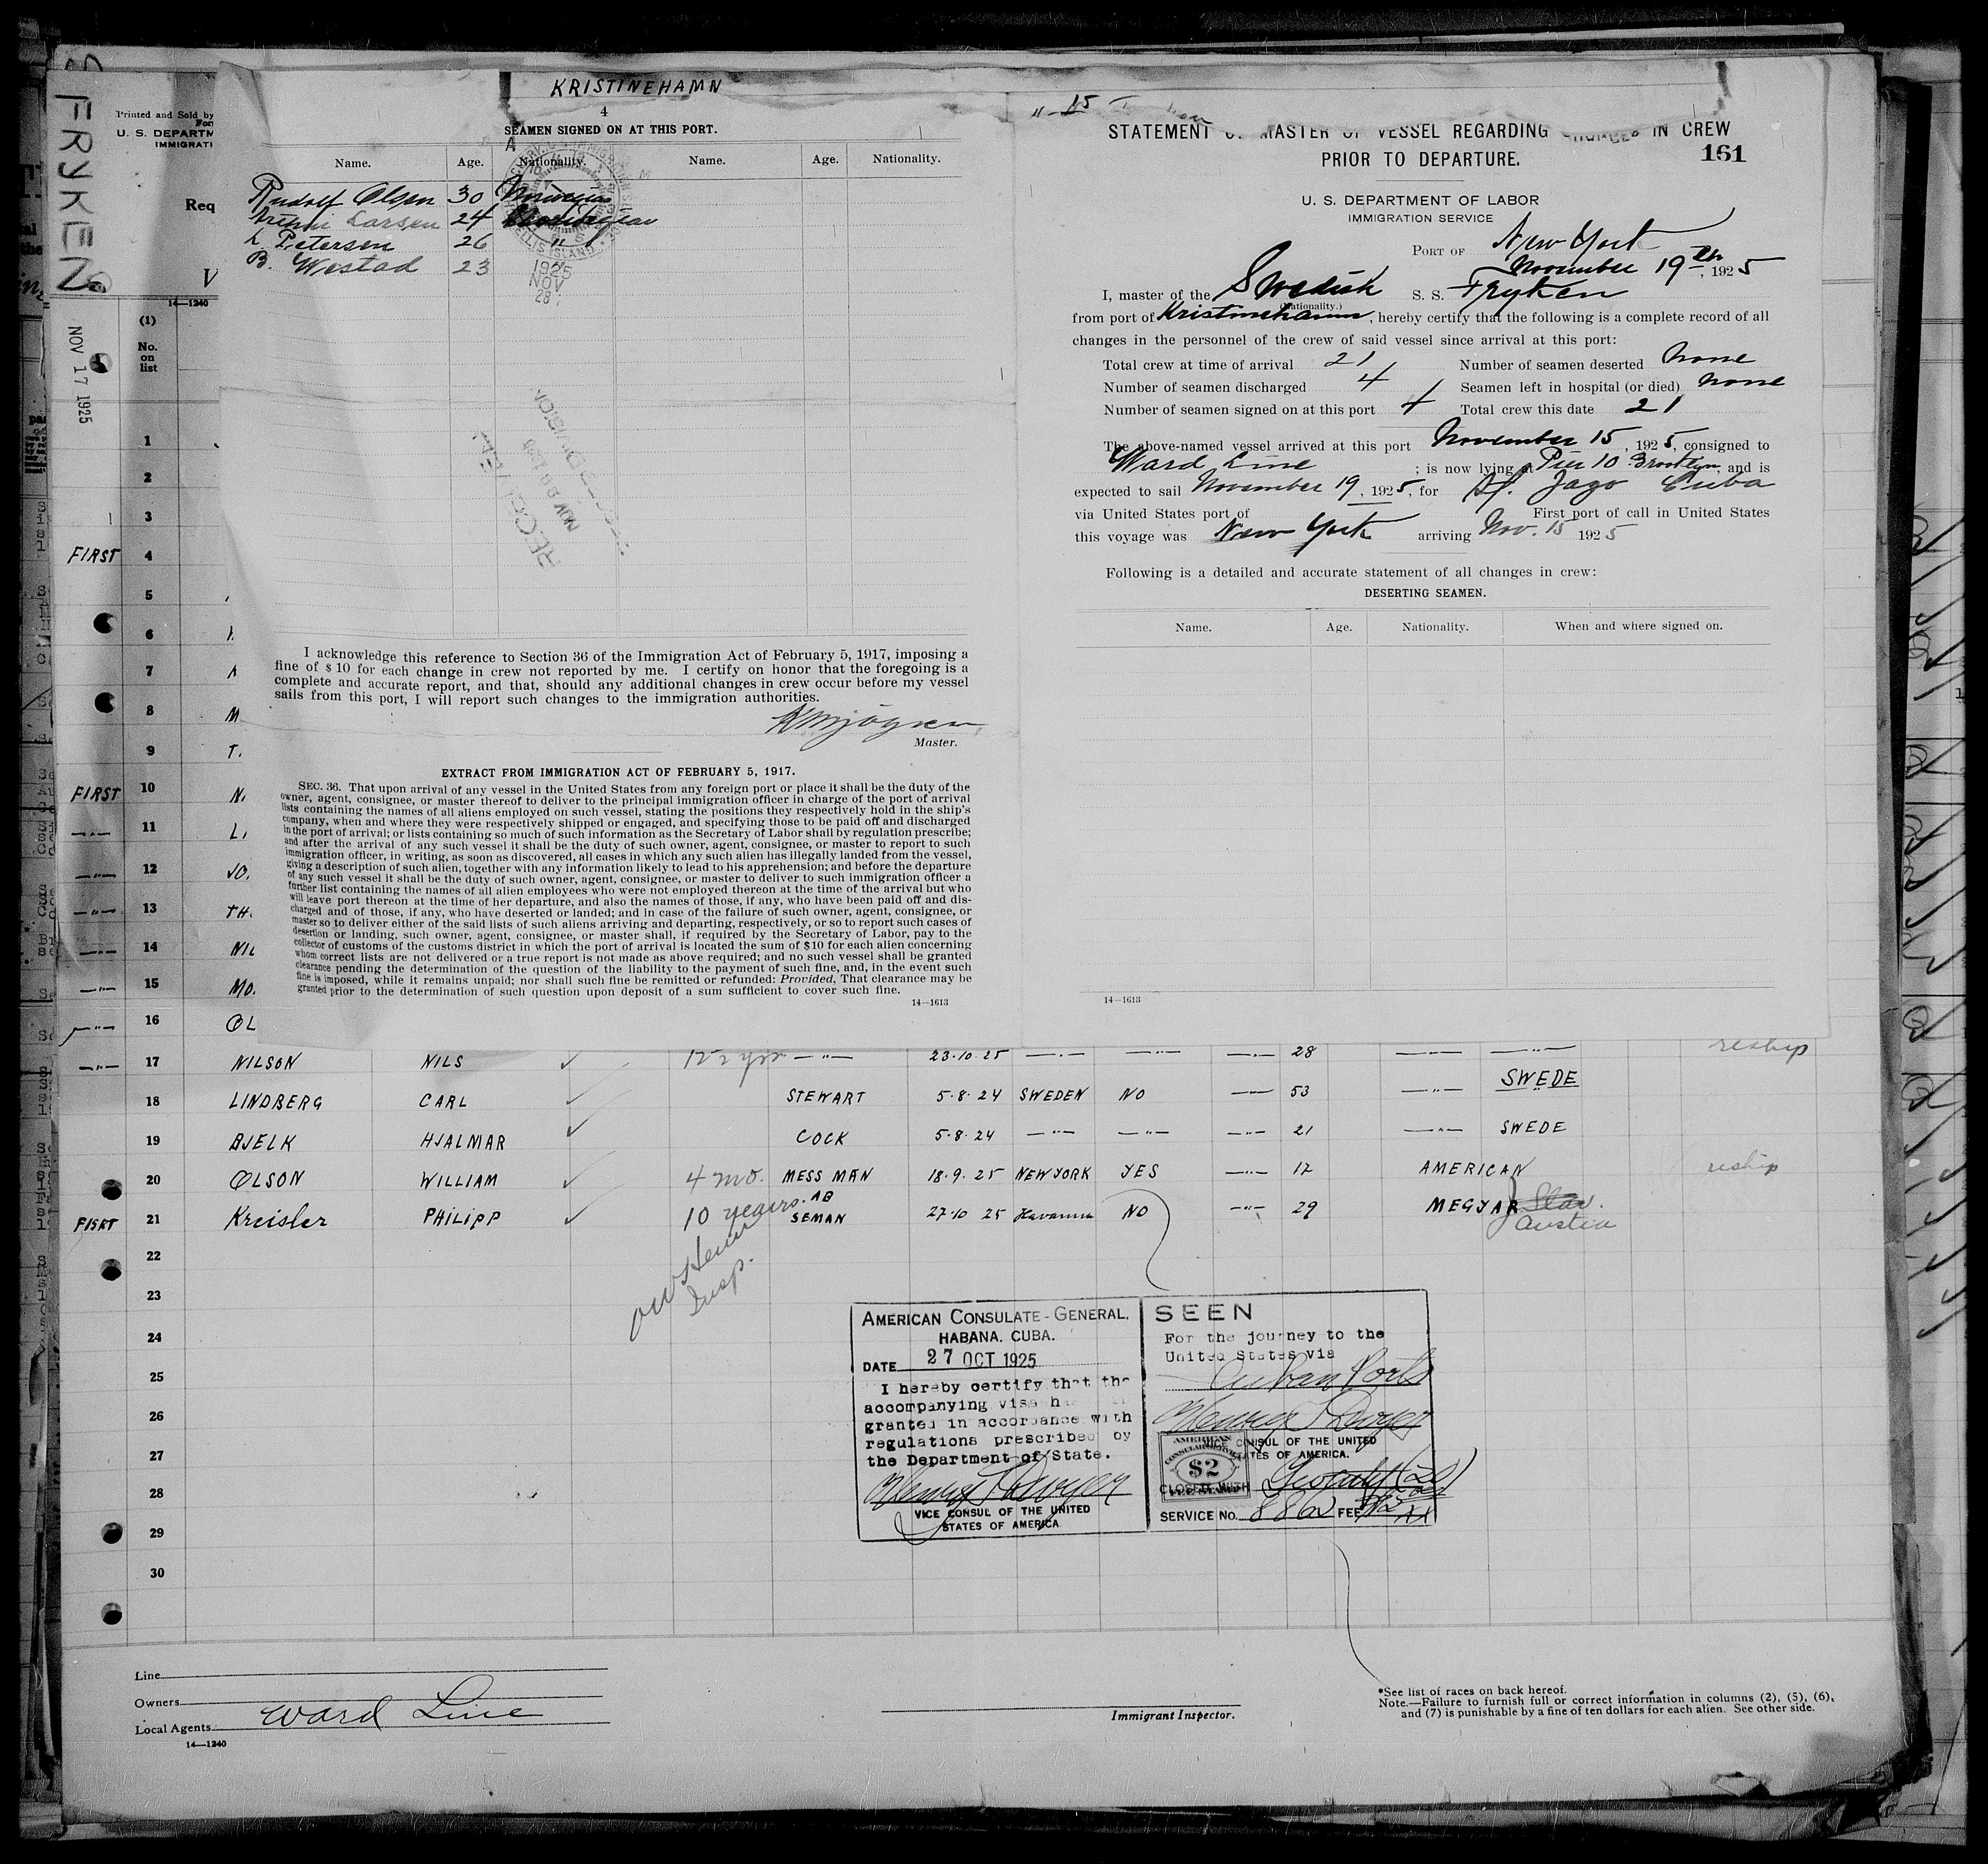 FRYKEN
NOV 17 1925
Printed and Sold by
U. S. DEPARTM
IMMIGRATI
Req
V
14—1240
KRISTINEHAMN
4
SEAMEN SIGNED ON AT THIS PORT.
Name. Age. Nationality. Name. Age. Nationality.
Rudolf Olsen 30 Norwegian
Larsen 24 Norwegian
L. Petersen 26 "
B. Westad 23 "
ELLIS ISLAND
1925
NOV
28
RECEIVED
NOV
DIVISION
I acknowledge this reference to Section 36 of the Immigration Act of February 5, 1917, imposing a
fine of $10 for each change in crew not reported by me. I certify on honor that the foregoing is a
complete and accurate report, and that, should any additional changes in crew occur before my vessel
sails from this port, I will report such changes to the immigration authorities.
Master.
EXTRACT FROM IMMIGRATION ACT OF FEBRUARY 5, 1917.
SEC. 36. That upon arrival of any vessel in the United States from any foreign port or place it shall be the duty of the
owner, agent, consignee, or master thereof to deliver to the principal immigration officer in charge of the port of arrival
lists containing the names of all aliens employed on such vessel, stating the positions they respectively hold in the ship's
company, when and where they were respectively shipped or engaged, and specifying those to be paid off and discharged
in the port of arrival; or lists containing so much of such information as the Secretary of Labor shall by regulation prescribe;
and after the arrival of any such vessel it shall be the duty of such owner, agent, consignee, or master to report to such
immigration officer, in writing, as soon as discovered, all cases in which any such alien has illegally landed from the vessel,
giving a description of such alien, together with any information likely to lead to his apprehension; and before the departure
of any such vessel it shall be the duty of such owner, agent, consignee, or master to deliver to such immigration officer a
further list containing the names of all alien employees who were not employed thereon at the time of the arrival but who
will leave port thereon at the time of her departure, and also the names of those, if any, who have been paid off and dis-
charged and of those, if any, who have deserted or landed; and in case of the failure of such owner, agent, consignee, or
master so to deliver either of the said lists of such aliens arriving and departing, respectively, or so to report such cases of
desertion or landing, such owner, agent, consignee, or master shall, if required by the Secretary of Labor, pay to the
collector of customs of the customs district in which the port of arrival is located the sum of $10 for each alien concerning
whom correct lists are not delivered or a true report is not made as above required; and no such vessel shall be granted
clearance pending the determination of the question of the liability to the payment of such fine, and, in the event such
fine is imposed, while it remains unpaid; nor shall such fine be remitted or refunded: Provided, That clearance may be
granted prior to the determination of such question upon deposit of a sum sufficient to cover such fine.
14—1613
STATEMENT OF MASTER OF VESSEL REGARDING CHANGES IN CREW
PRIOR TO DEPARTURE.
161
U. S. DEPARTMENT OF LABOR
IMMIGRATION SERVICE
PORT OF New York
November 19th, 1925
I, master of the Swedish S. S. Fryken
(Nationality.)
from port of Kristinehamn, hereby certify that the following is a complete record of all
changes in the personnel of the crew of said vessel since arrival at this port:
Total crew at time of arrival 21 Number of seamen deserted None
Number of seamen discharged 4 Seamen left in hospital (or died) None
Number of seamen signed on at this port 4 Total crew this date 21
The above-named vessel arrived at this port November 15, 1925, consigned to
Ward Line ; is now lying at Pier 10 Brooklyn, and is
expected to sail November 19, 1925, for St. Jago Cuba
via United States port of First port of call in United States
this voyage was New York arriving Nov. 15 1925
Following is a detailed and accurate statement of all changes in crew:
DESERTING SEAMEN.
Name. Age. Nationality. When and where signed on.
14—1613
(1)
No.
on
list
1
2
3
FIRST 4
5
6
7
8 M
9 T.
FIRST 10 N.
—"— 11 L.
—"— 12 JO.
—"— 13 TH.
—"— 14 NIL
—"— 15 MO.
—"— 16 OL
—"— 17 NILSON NILS —"— 23.10.25 —"— —"— —"— 28 —"— —"— reship
18 LINDBERG CARL STEWART 5.8.24 SWEDEN NO —"— 53 —"— SWEDE
19 BJELK HJALMAR COCK 5.8.24 —"— —"— —"— 21 —"— SWEDE
20 OLSON WILLIAM 4 mo. MESS MAN 18.9.25 NEW YORK YES —"— 17 AMERICAN reship
FISRT 21 Kreisler PHILIPP 10 years. AB SEMAN 27.10 25 Havanna NO —"— 29 MEGYAR Slav. Austria
22
Insp.
23
24
25
26
27
28
29
30
AMERICAN CONSULATE-GENERAL,
HABANA, CUBA.
DATE 27 OCT 1925
I hereby certify that the
accompanying visa has
granted in accordance with
regulations prescribed by
the Department of State.
VICE CONSUL OF THE UNITED
STATES OF AMERICA
SEEN
For the journey to the
United States via
Cuban Ports
CONSUL OF THE UNITED
STATES OF AMERICA.
AMERICAN
CONSULAR SERVICE
$2
SERVICE NO. 8862 FEE
Line
Owners
Local Agents Ward Line
14—1240
Immigrant Inspector.
*See list of races on back hereof.
Note.—Failure to furnish full or correct information in columns (2), (5), (6),
and (7) is punishable by a fine of ten dollars for each alien. See other side.